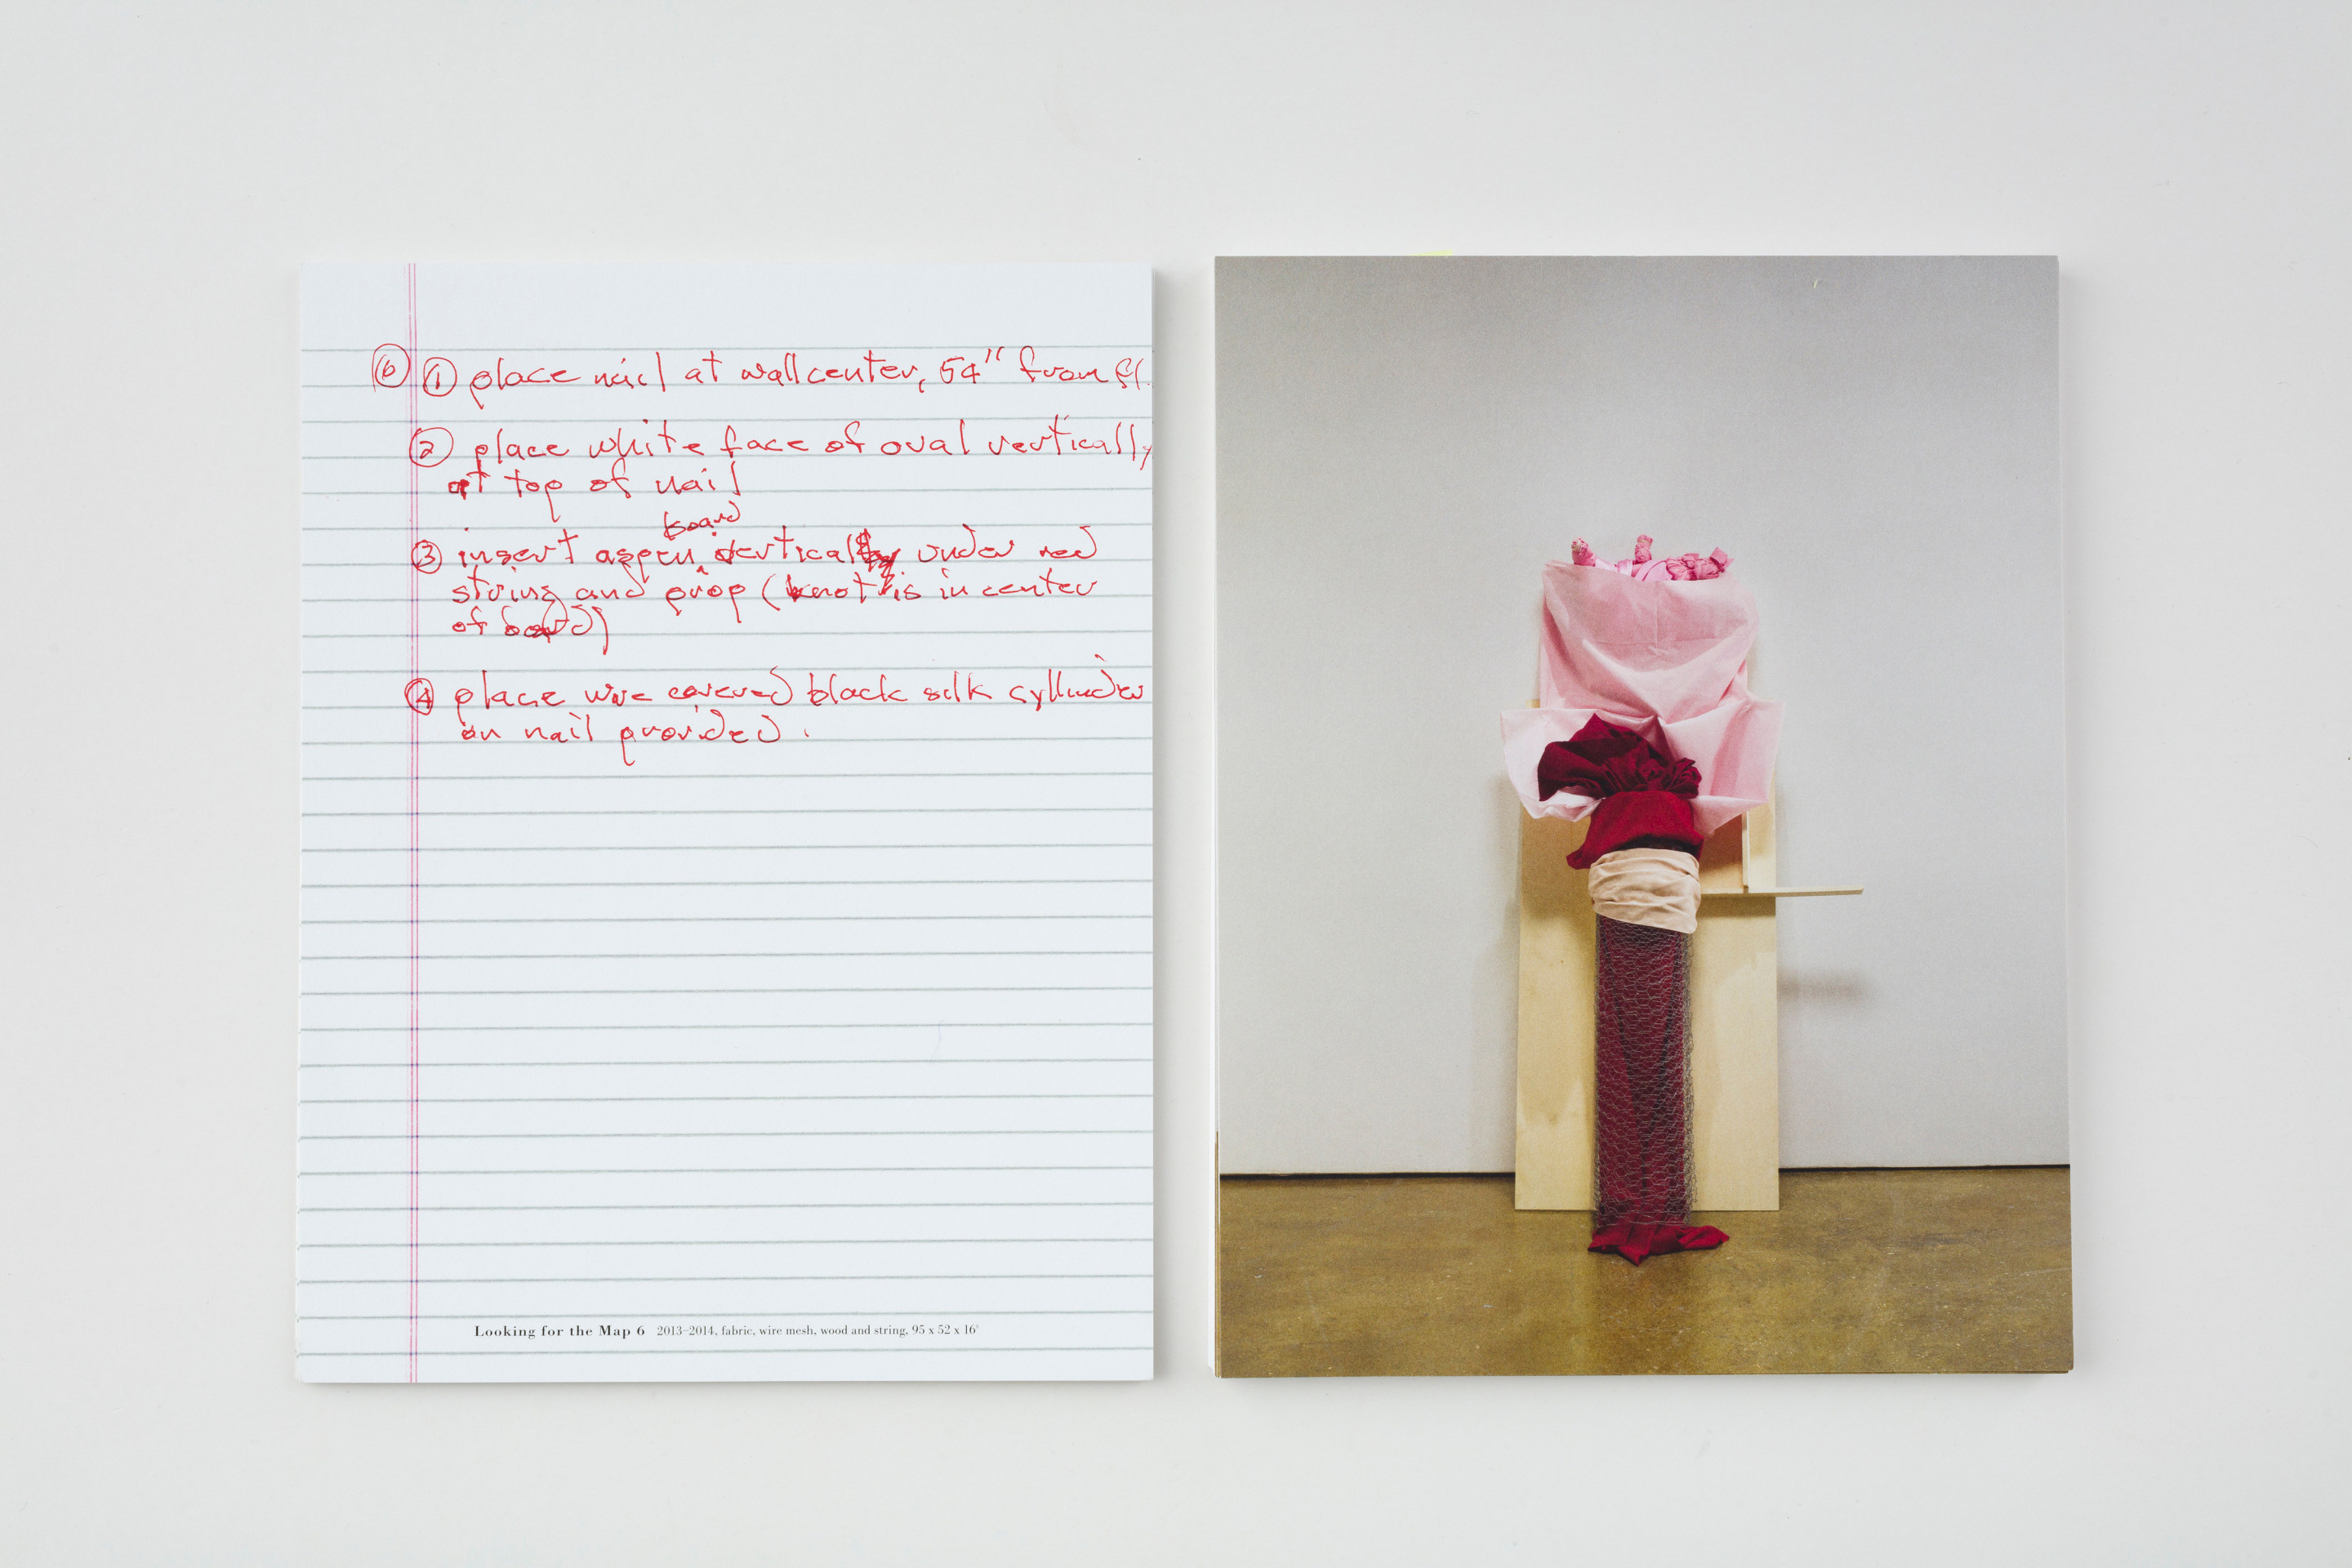 6 1 place nail at wall center, 54" from fl.
2 place white face of oval vertically
at top of nail
board
3 insert aspen vertically under red
string and prop (knot is in center
of board)
4 place wire covered black silk cylinder
on nail provided.
Looking for the Map 6 2013–2014, fabric, wire mesh, wood and string, 95 x 52 x 16"